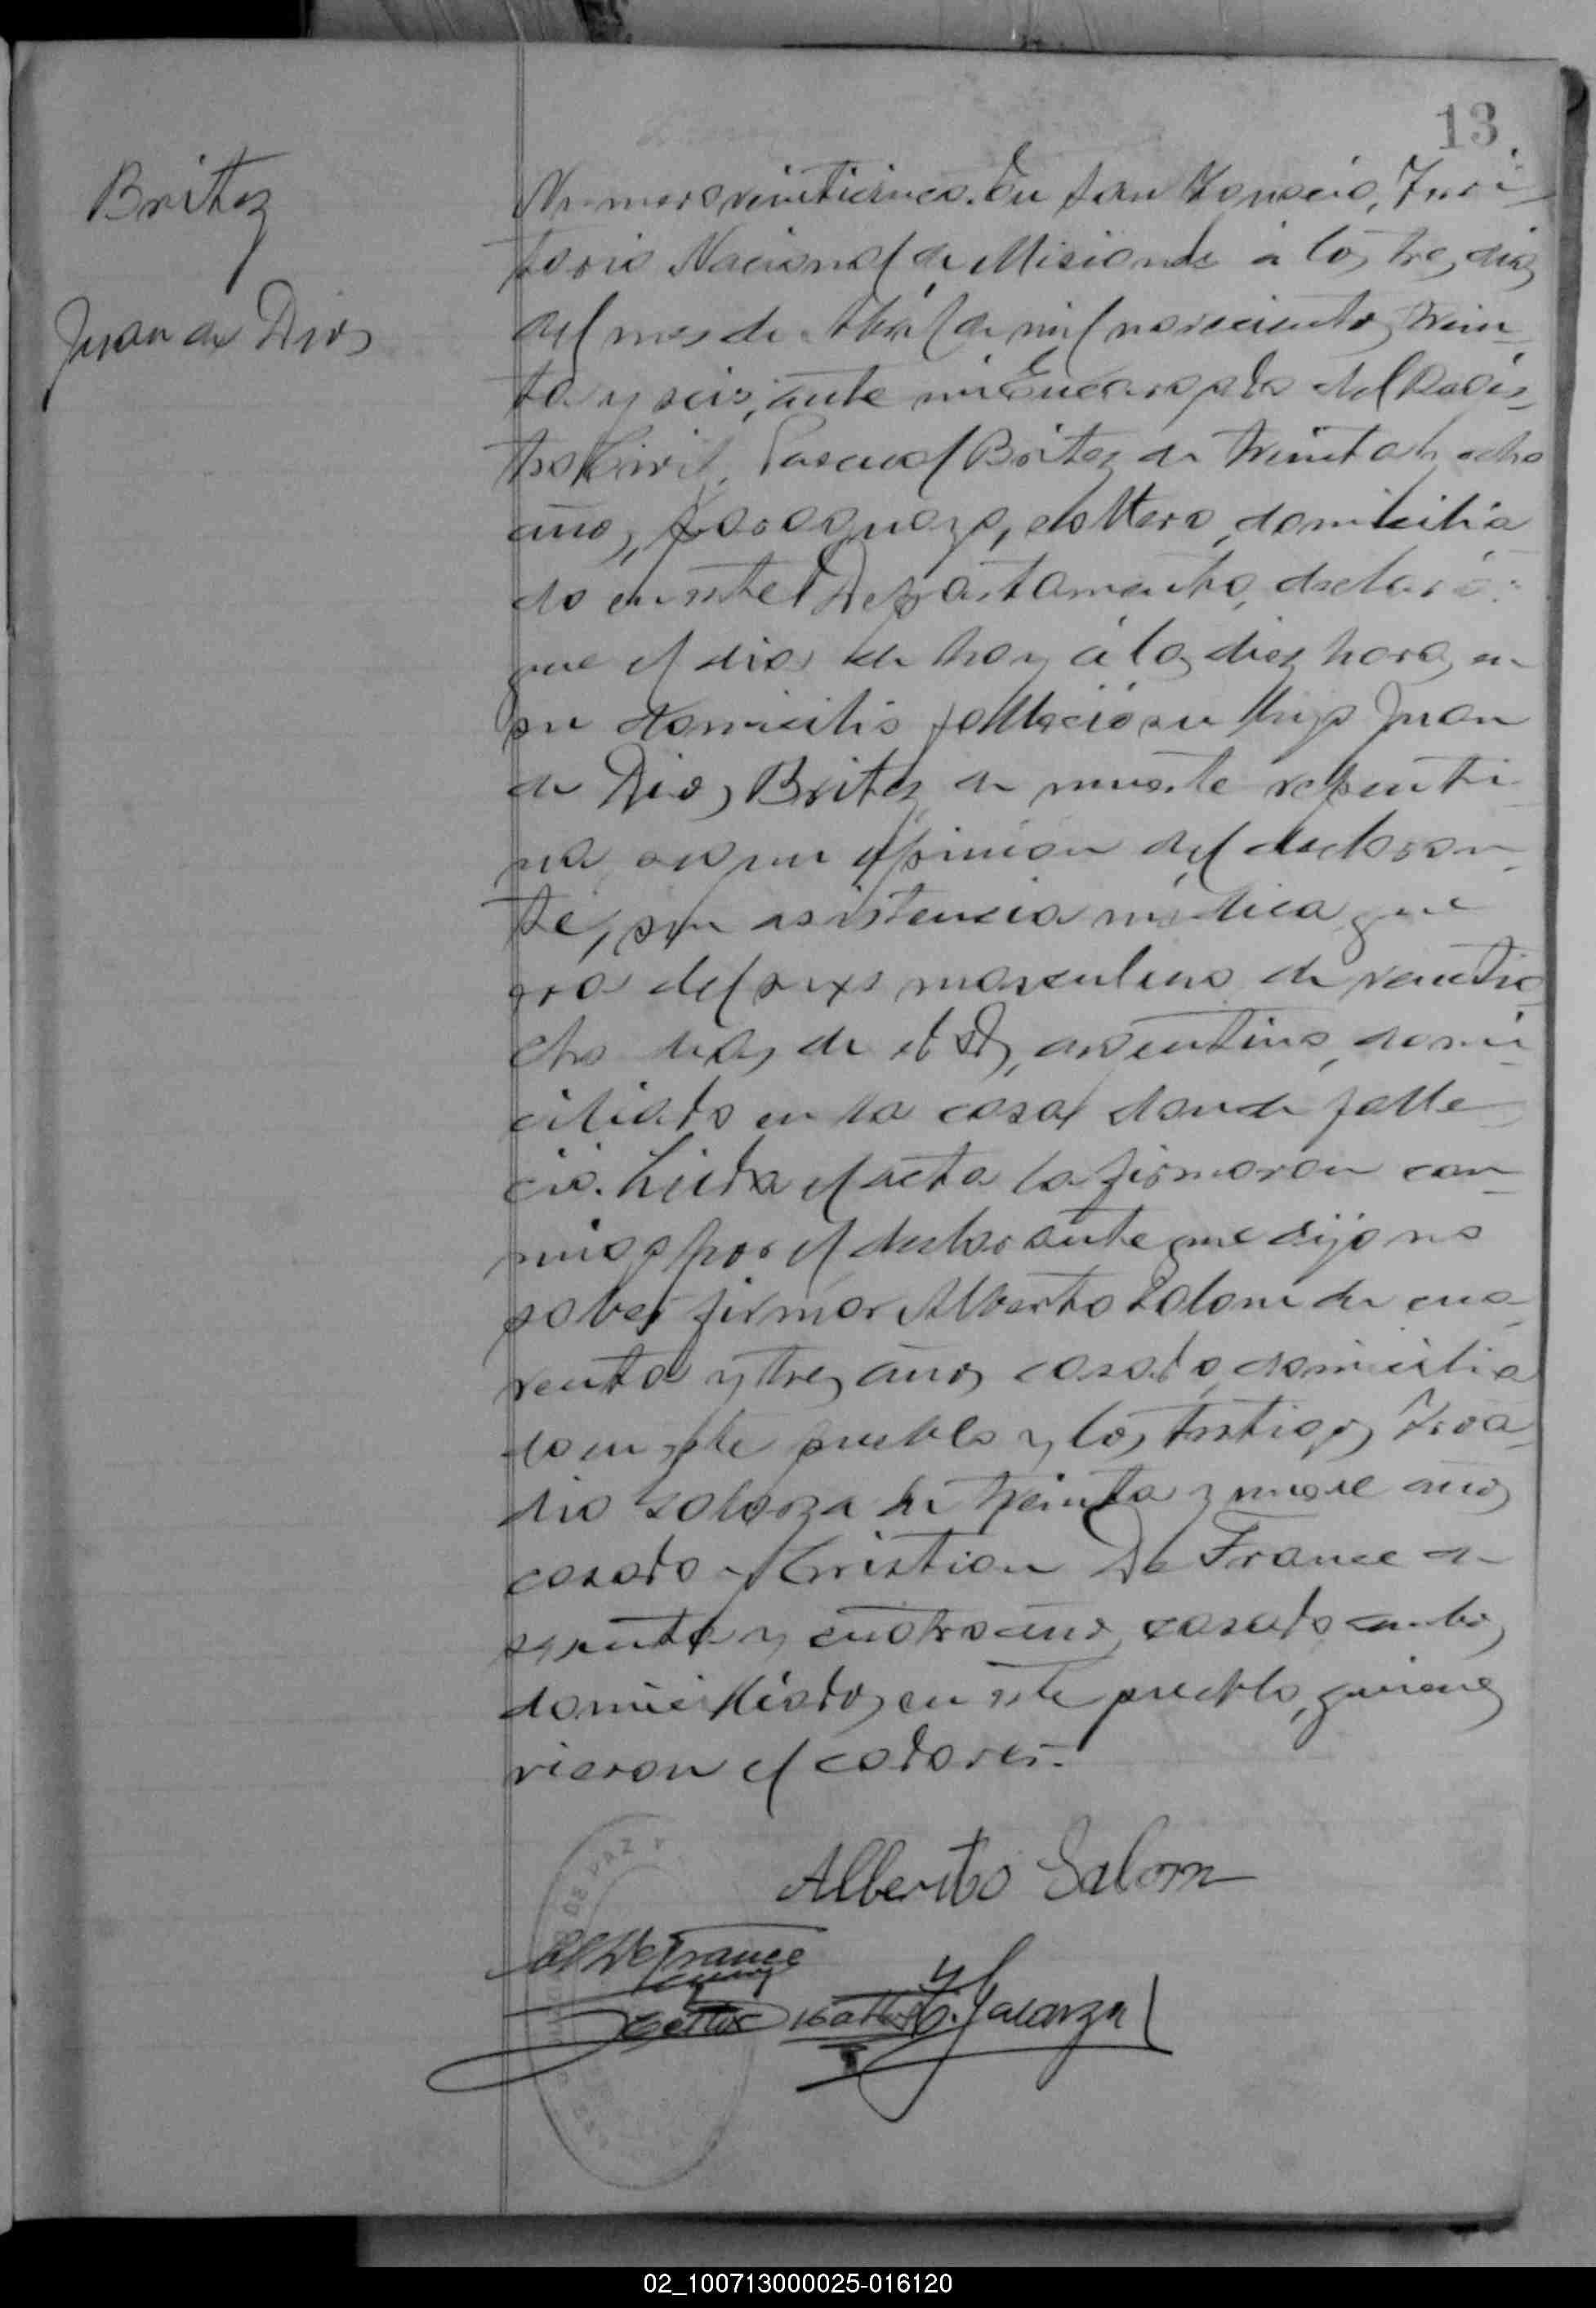 13
Britez
Juan de Dios
Numero veinticinco. En San Ygnacio, Terri-
torio Nacional de Misiones a los tres dias
del mes de Abril de mil novecientos trein-
ta y seis, ante mi Encargado del Regis-
tro Civil, Pascual Britez de treinta y ocho
años, paraguayo, soltero, domicilia
do en este Departamento, declaró:
que el dia de hoy á las diez horas en
su domicilio falleció su hijo Juan
de Dios Britez de muerte repenti-
na segun opinion del declaran-
te, sin asistencia médica, que
era del sexo masculino de veintio
cho dias de edad, argentino, domi-
ciliado en la casa donde falle-
ció. Leida el acta la firmaron con-
migo por el declarante que dijo no
saber firmar Alberto Salom de cua-
renta y tres años casado domicilia
do en este pueblo y los testigos
Galarza de treinta y nueve años
casado y Cristian De France de
y cuatro años casado ambos
domiciliados en este pueblo, quienes
vieron el cadaver.-
Alberto Salom
DE PAZ Y
De France
Galarza
02_100713000025-016120